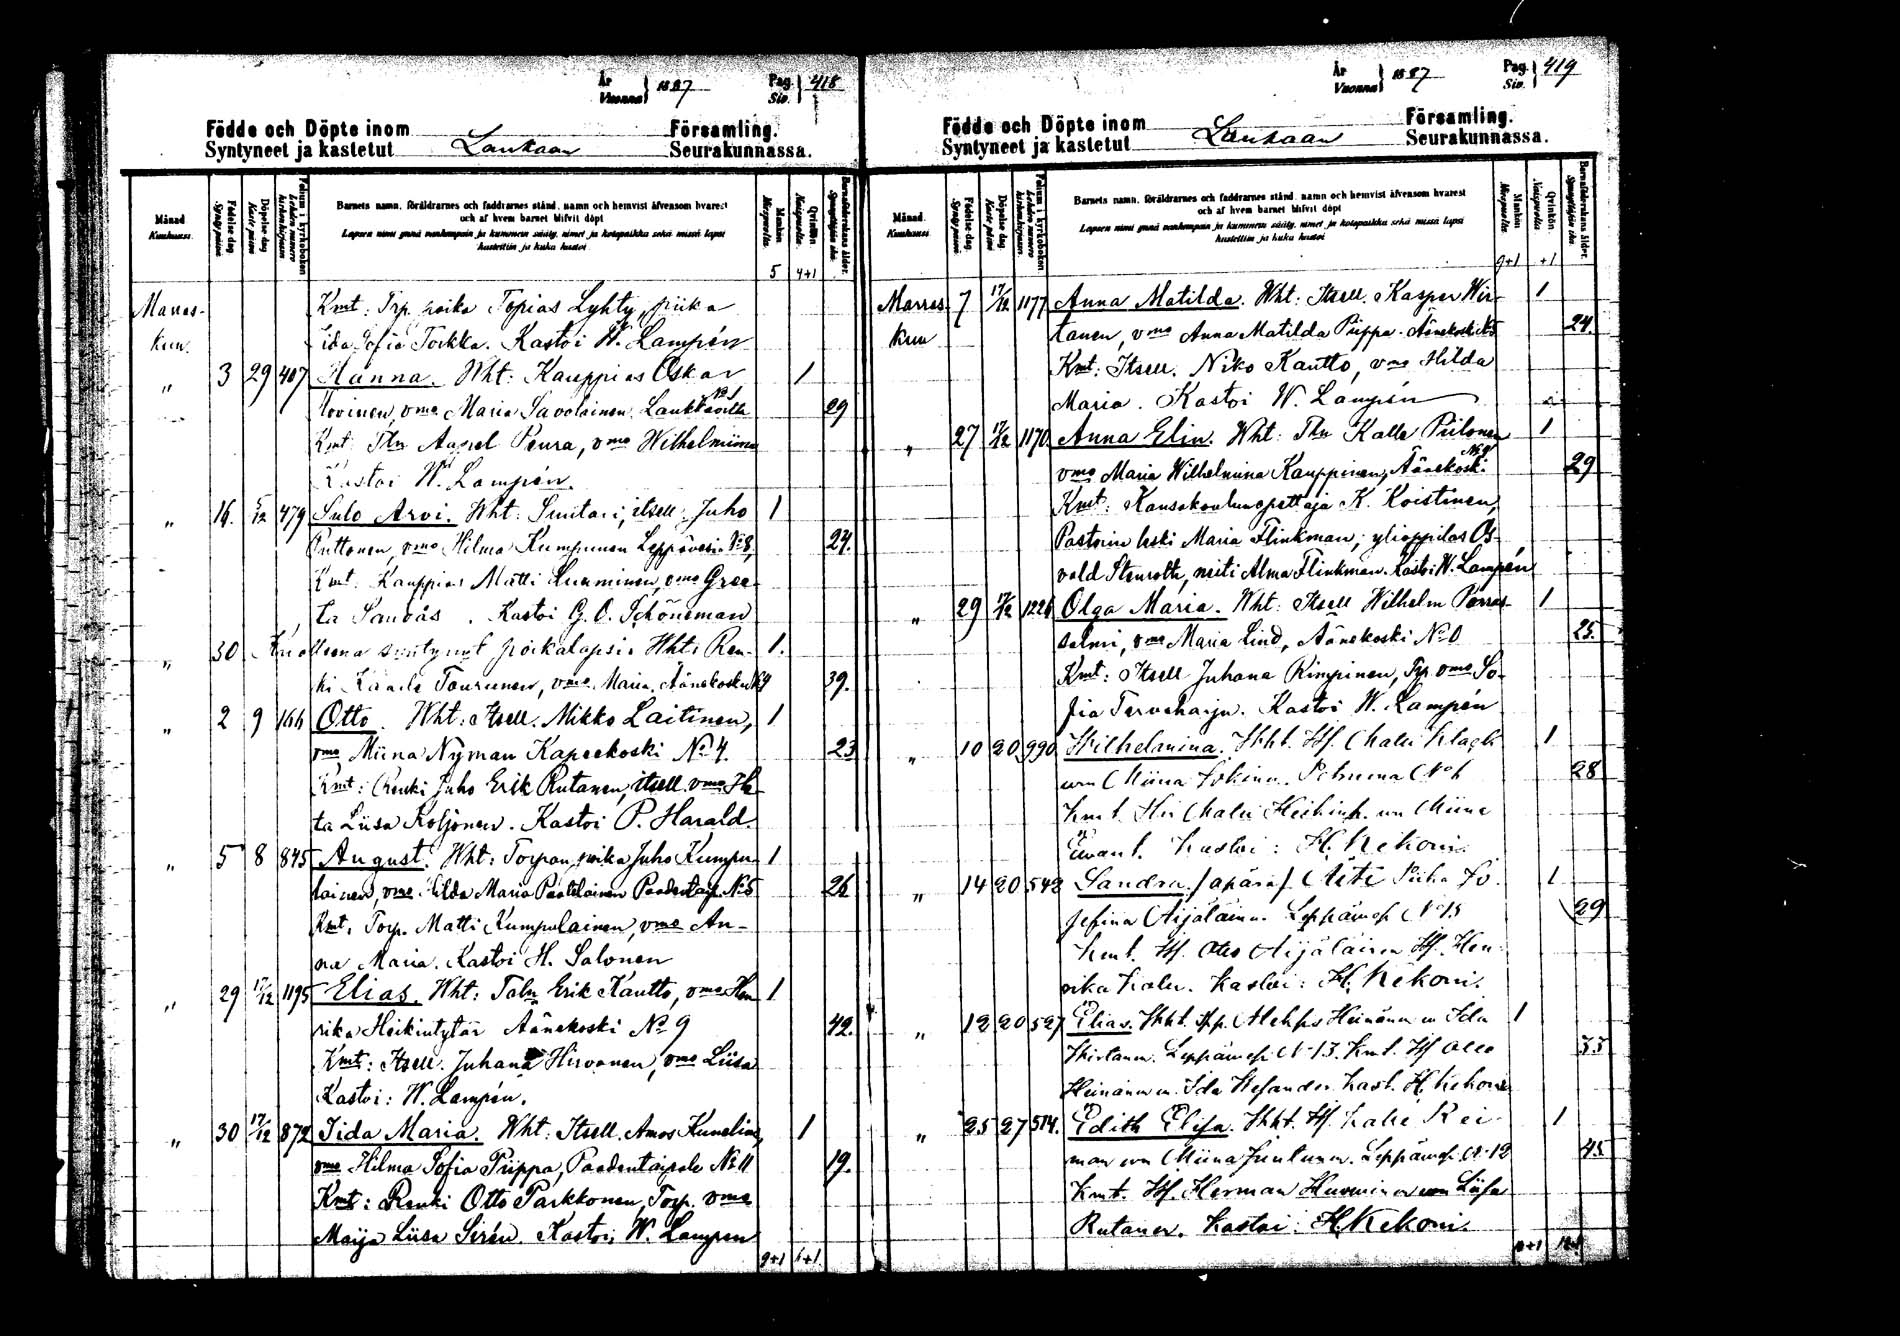 År
Vuonna } 1887
Pag.
Siv. } 418
Födde och Döpte inom Laukaan Församling.
Syntyneet ja kastetut Seurakunnassa.
Månad
Kuukausi.
Födelse dag.
Syntypäivä
Döpelse dag
Kastepäivä
Folium i kyrkoboken
Lehden numero kirkonkirjassa
Barnets namn, föräldrarnes och faddrarnes stånd, namn och hemvist äfvensom hvarest
och af hvem barnet blifvit döpt
Lapsen nimi ynnä vanhempain ja kummein sääty, nimet ja kotopaikka sekä missä lapsi
kastettiin ja kuka kastoi
Mankön
Miespuolia.
Qvinkön
Naispuolia.
Barnaföderskans ålder.
5 4+1
Marras- Kmt: Trp. poika Topias Lyhty, piika
kuu. Iida Sofia Torkka. Kastoi W. Lampén
„ 3 29 407 Hanna. Wht: Kauppias Oskar 1
Hovinen, vmo Maria Savolainen. No 1 29
Kmt: Tln Aapel Peura, vmo Wilhelmiina
Kastoi W. Lampén.
„ 16. 5/12 479 Sulo Arvi. Wht: Suutari, itsell. Juho 1
Puttonen, vmo Hilma Kumpunen Leppävesi No 8, 24.
Kmt: Kauppias Matti Luuminen, vmo Gree-
ta Sandås. Kastoi G. O. Schöneman
„ 30 Kuolleena syntynyt poikalapsi. Wht: Ren- 1.
ki Kaarle Tourunen, vmo Maria. Äänekoski No 9 39.
„ 2 9 166 Otto. Wht: Itsell. Mikko Laitinen, 1
vmo Miina Nyman Kapeekoski No 4. 23
Kmt: Renki Juho Erik Rutanen, itsell. vmo
ta Liisa Koljonen. Kastoi P. Harald.
„ 5 8 845 August. Wht: Torpan poika Juho Kumpu- 1
lainen, vmo Hilda Maria No 5 26
Kmt. Torp. Matti Kumpulainen, vmo An-
na Maria. Kastoi H. Salonen
„ 29 17/12 1195 Elias. Wht: Taln Erik Kautto, vmo Hen- 1
rika Heikintytär Äänekoski No 9 42.
Kmt: Itsell. Juhana Hirvonen, vmo Liisa
Kastoi: W. Lampén.
„ 30 17/12 872 Iida Maria. Wht. Itsell. Amos Kunelius, 1
vmo Hilma Sofia Piippa, Paadentaipale No 11 19.
Kmt: Renki Otto Parkkonen, Torp. vmo
Maija Liisa Sirén. Kastoi W. Lampen
9+1 6+1
År
Vuonna } 1887
Pag.
Siv. } 419
Födde och Döpte inom Laukaan Församling.
Syntyneet ja kastetut Seurakunnassa.
Månad
Kuukausi.
Födelse dag.
Syntypäivä
Döpelse dag.
Kastepäivä
Folium i kyrkoboken
Lehden numero kirkonkirjassa.
Barnets namn, föräldrarnes och faddrarnes stånd, namn och hemvist äfvensom hvarest
och af hvem barnet blifvit döpt
Lapsen nimi ynnä vanhempain ja kummein sääty, nimet ja kotopaikka sekä missä lapsi
kastettiin ja kuka kastoi
Mankön
Miespuolia.
Qvinkön
Naispuolia
Barnaföderskans ålder.
9+1 +1
Marras- 7 17/12 1177 Anna Matilda. Wht: Itsell. Kasper Wir- 1
kuu tanen, vmo Anna Matilda Piippa. Äänekoski No 5 24.
Kmt: Itsell. Niko Kautto, vmo Hilda
Maria. Kastoi W. Lampén
„ 27 17/12 1170 Anna Elin. Wht: Tln Kalle Piilonen 1
vmo Maria Wilhelmina Kauppinen, Äänekoski No 9 29
Kmt: Kansakoulunopettaja K. Koistinen,
Pastorin leski Maria Flinkman, ylioppilas Os-
vald Stenroth, neiti Alma Flinkman. Kastoi W. Lampén
„ 29 17/12 1226 Olga Maria. Wht: Itsell Wilhelm Porras- 1
salmi, vmo Maria Lind, Äänekoski No 0 25.
Kmt: Itsell Juhana Rimpinen, Trp. vmo So-
fia Tervaharju. Kastoi W. Lampén
„ 10 20 990 Wilhelmina. Wht. 1
Miina Petruma No 6 28
Kmt. Miina
Kastoi: H. Kekoni.
„ 14 20 542 Sandra (äpärä). Äiti Piika Jo- 1
sefina Äijäläinen. Leppävesi No 13 29
Kmt. Otto Äijäläinen Hen-
rika Kastoi: H. Kekoni.
„ 12 20 527 Elias. Wht. Heinänen Ida 1
Wirtanen. Leppävesi No 13. Kmt. Otto 33
Heinänen Ida Kast. H. Kekoni
„ 25 27 514. Edith Elisa. Wht. Kalle Rei- 1
man Miina Juntunen. Leppävesi No 12 45
Kmt. Herman Liisa
Rutanen. Kastoi: H. Kekoni.